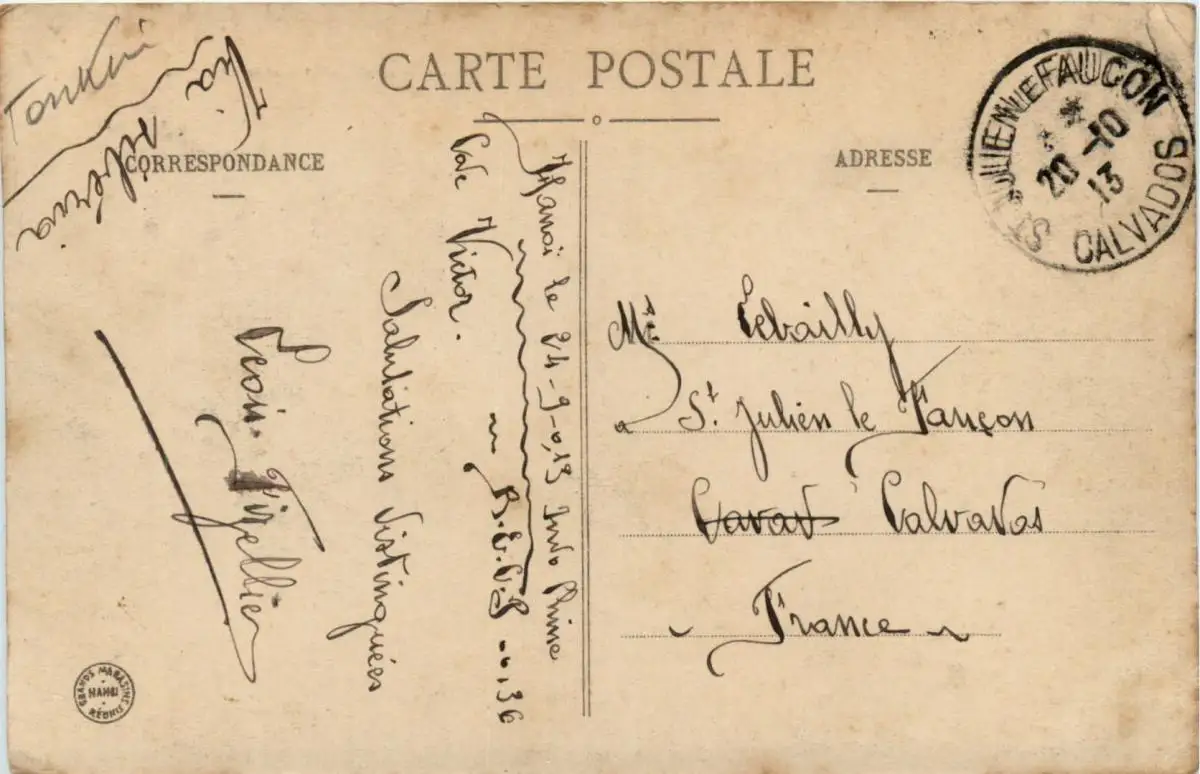 Tonkin
Via
CARTE POSTALE
CORRESPONDANCE
ADRESSE
ST JULIEN LE FAUCON
* *
20 -10
13
CALVADOS
Hanoi le 24-9-0,13 Indo Chine
Victor. R.E.V.S
Salutations distinguées
Léon
Mr Lebailly
a St Julien le Fançon
Calvados
France
GRANDS MAGASINS RÉUNIS
HANOI